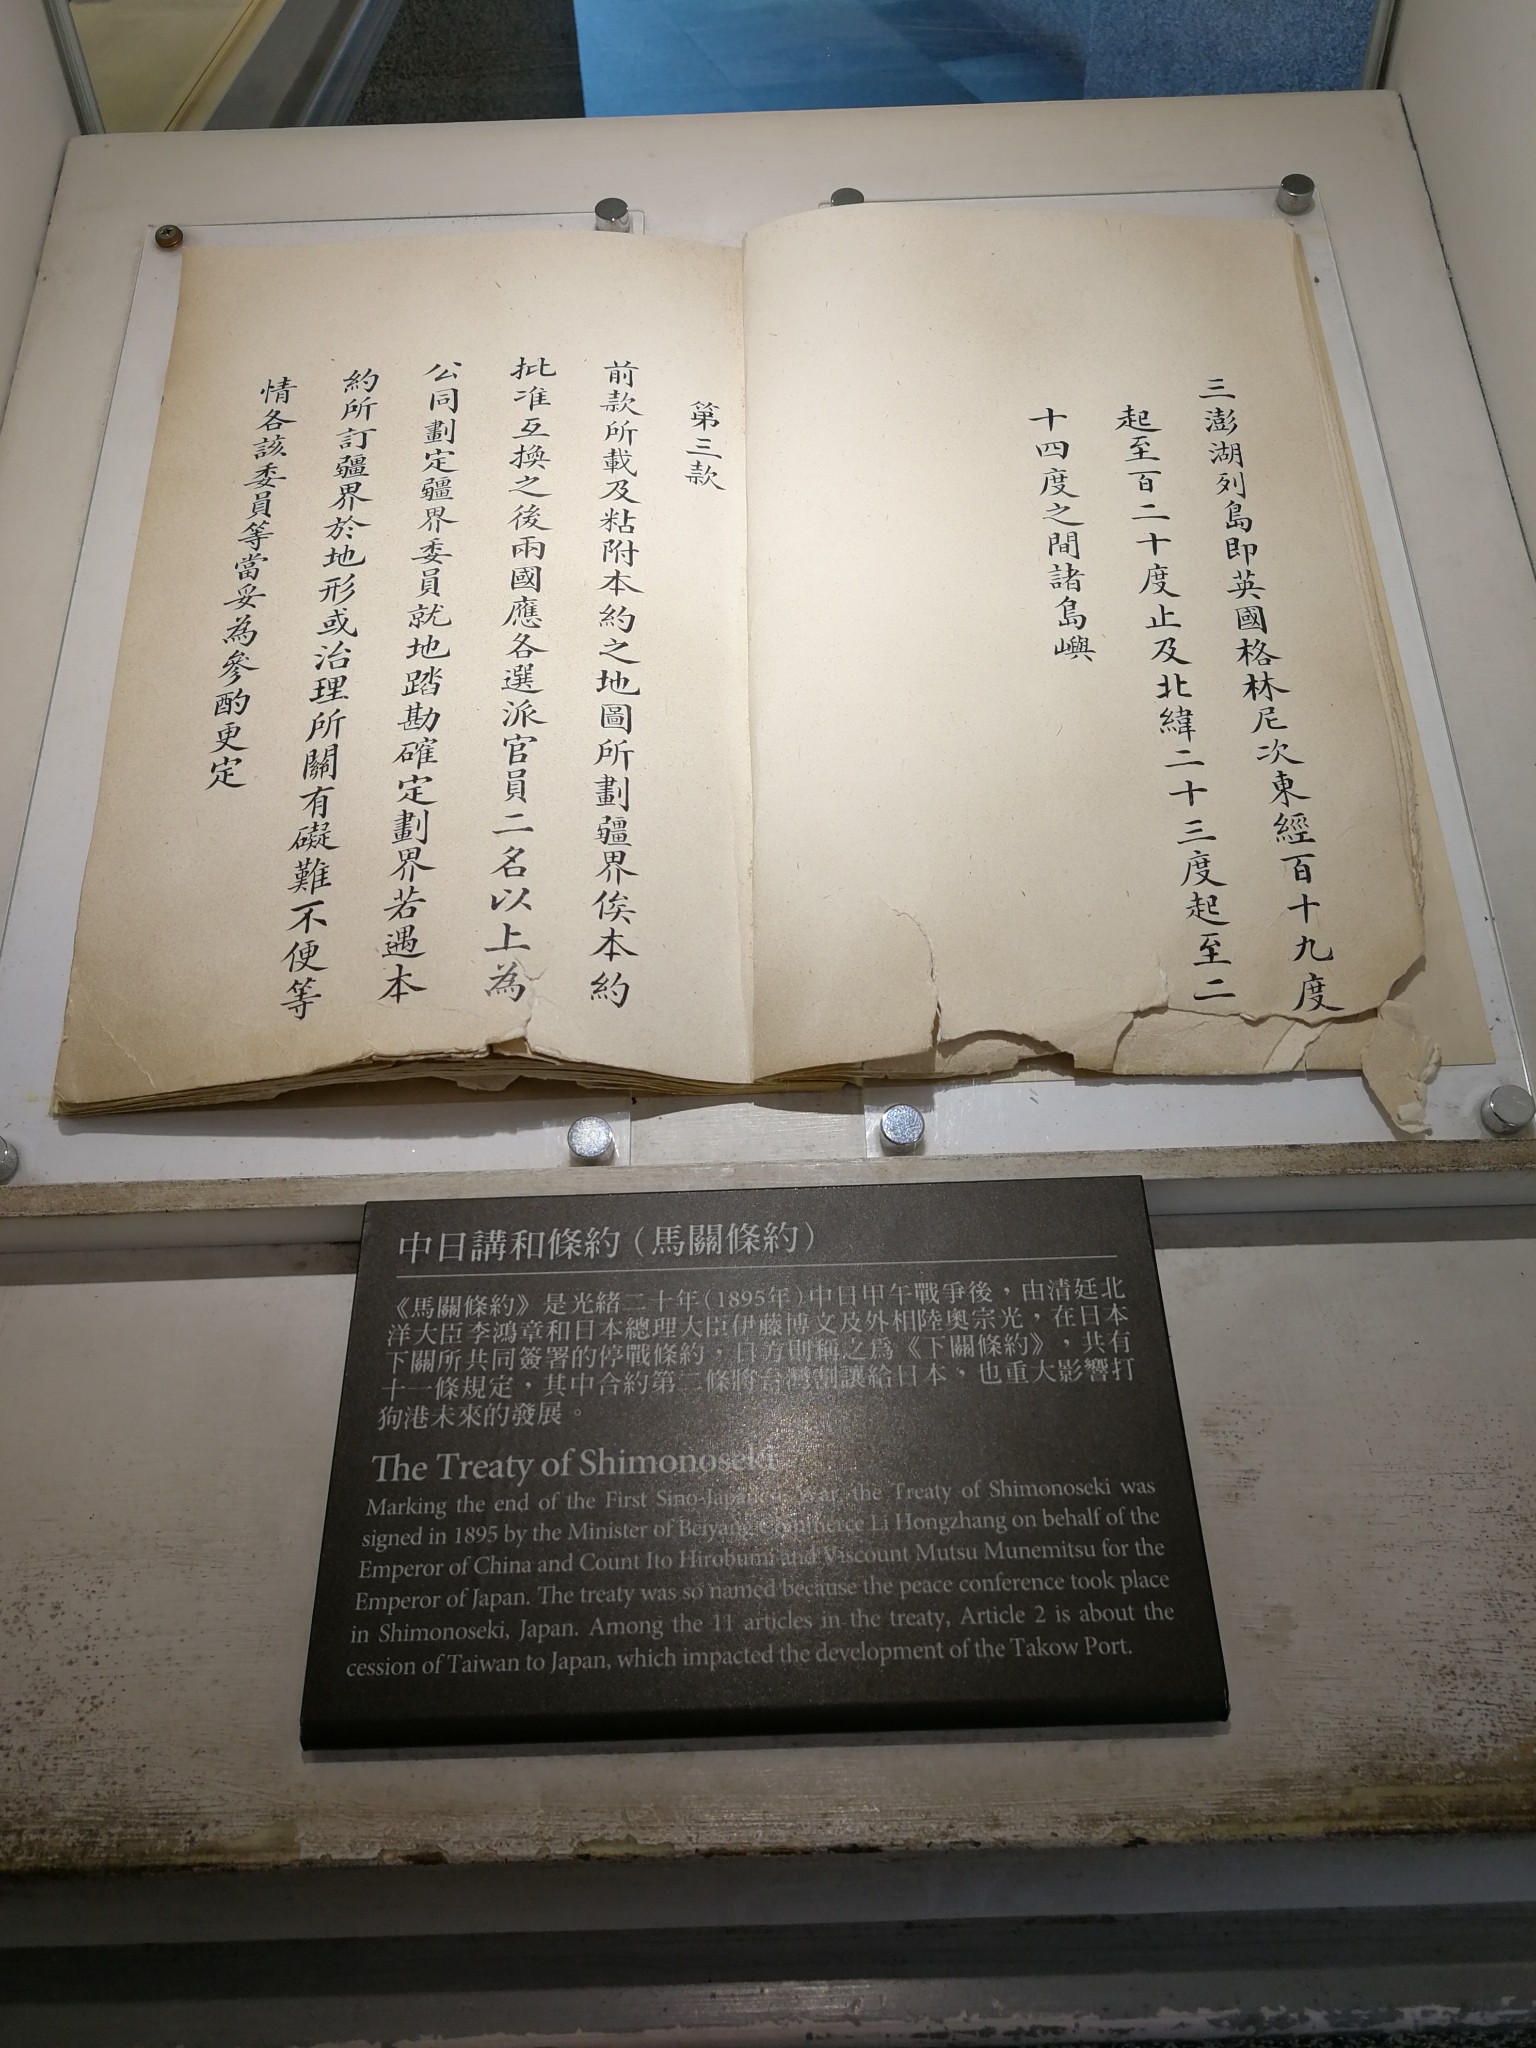 三澎湖列島即英國格林尼次東經百十九度
起至百二十度止及北緯二十三度起至二
十四度之間諸島嶼
第三款
前款所載及粘附本約之地圖所劃疆界俟本約
批准互換之後兩國應各選派官員二名以上為
公同劃定疆界委員就地踏勘確定劃界若遇本
約所訂疆界於地形或治理所關有礙難不便等
情各該委員等當妥為參酌更定
中日講和條約(馬關條約)
《馬關條約》是光緒二十年(1895年)中日甲午戰爭後，由清廷北
洋大臣李鴻章和日本總理大臣伊藤博文及外相陸奧宗光，在日本
下關所共同簽署的停戰條約，日方則稱之為《下關條約》，共有
十一條規定，其中合約第二條將台灣割讓給日本，也重大影響打
狗港未來的發展。
The Treaty of Shimonoseki
Marking the end of the First Sino-Japanese War, the Treaty of Shimonoseki was
signed in 1895 by the Minister of Beiyang Commerce Li Hongzhang on behalf of the
Emperor of China and Count Ito Hirobumi and Viscount Mutsu Munemitsu for the
Emperor of Japan. The treaty was so named because the peace conference took place
in Shimonoseki, Japan. Among the 11 articles in the treaty, Article 2 is about the
cession of Taiwan to Japan, which impacted the development of the Takow Port.